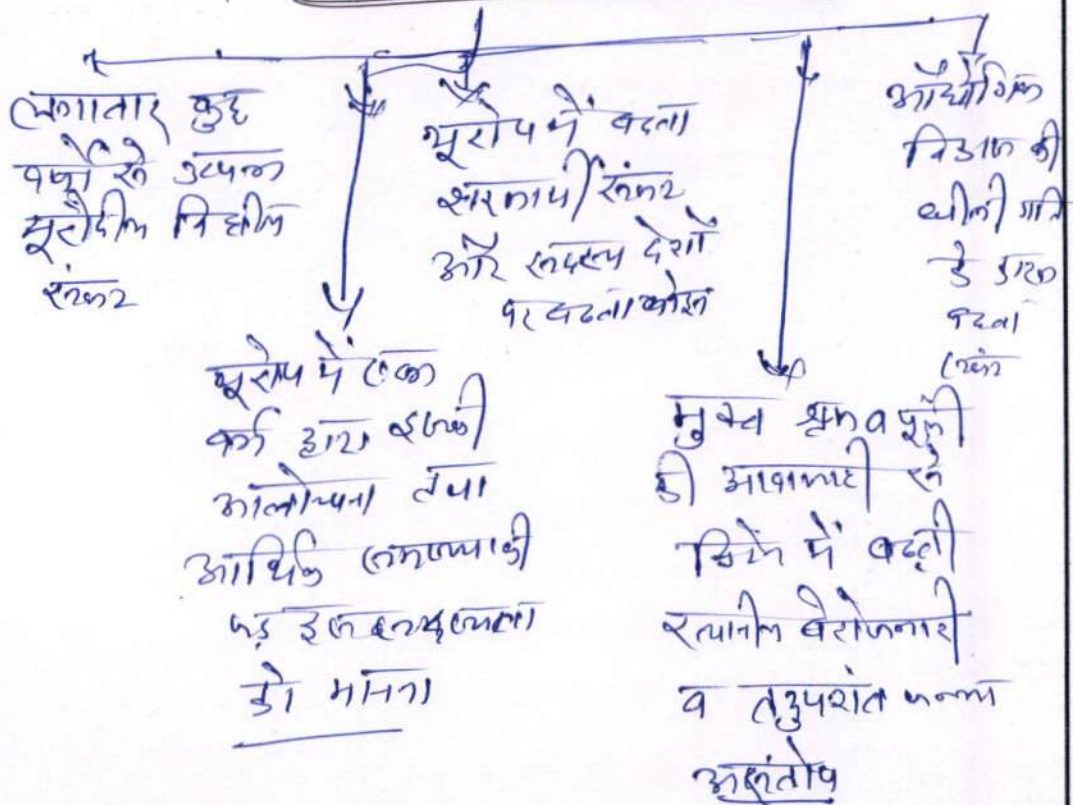 लगातार कुछ
वर्षों से उत्पन्न
यूरोपीय वित्तीय
संकट
यूरोप में एक
वर्ग द्वारा इसकी
आलोचना तथा
आर्थिक समस्या की
जड़ इस
को मानना
यूरोप में बढ़ता
शरणार्थी संकट
और सदस्य देशों
पर बढ़ता बोझ
मुक्त श्रम व पूँजी
की आवाजाही से
ब्रिटेन में बढ़ती
स्थानीय बेरोजगारी
व तदुपरांत जन्मा
असंतोष
औद्योगिक
विकास की
धीमी गति
के कारण
बढ़ता
संकट